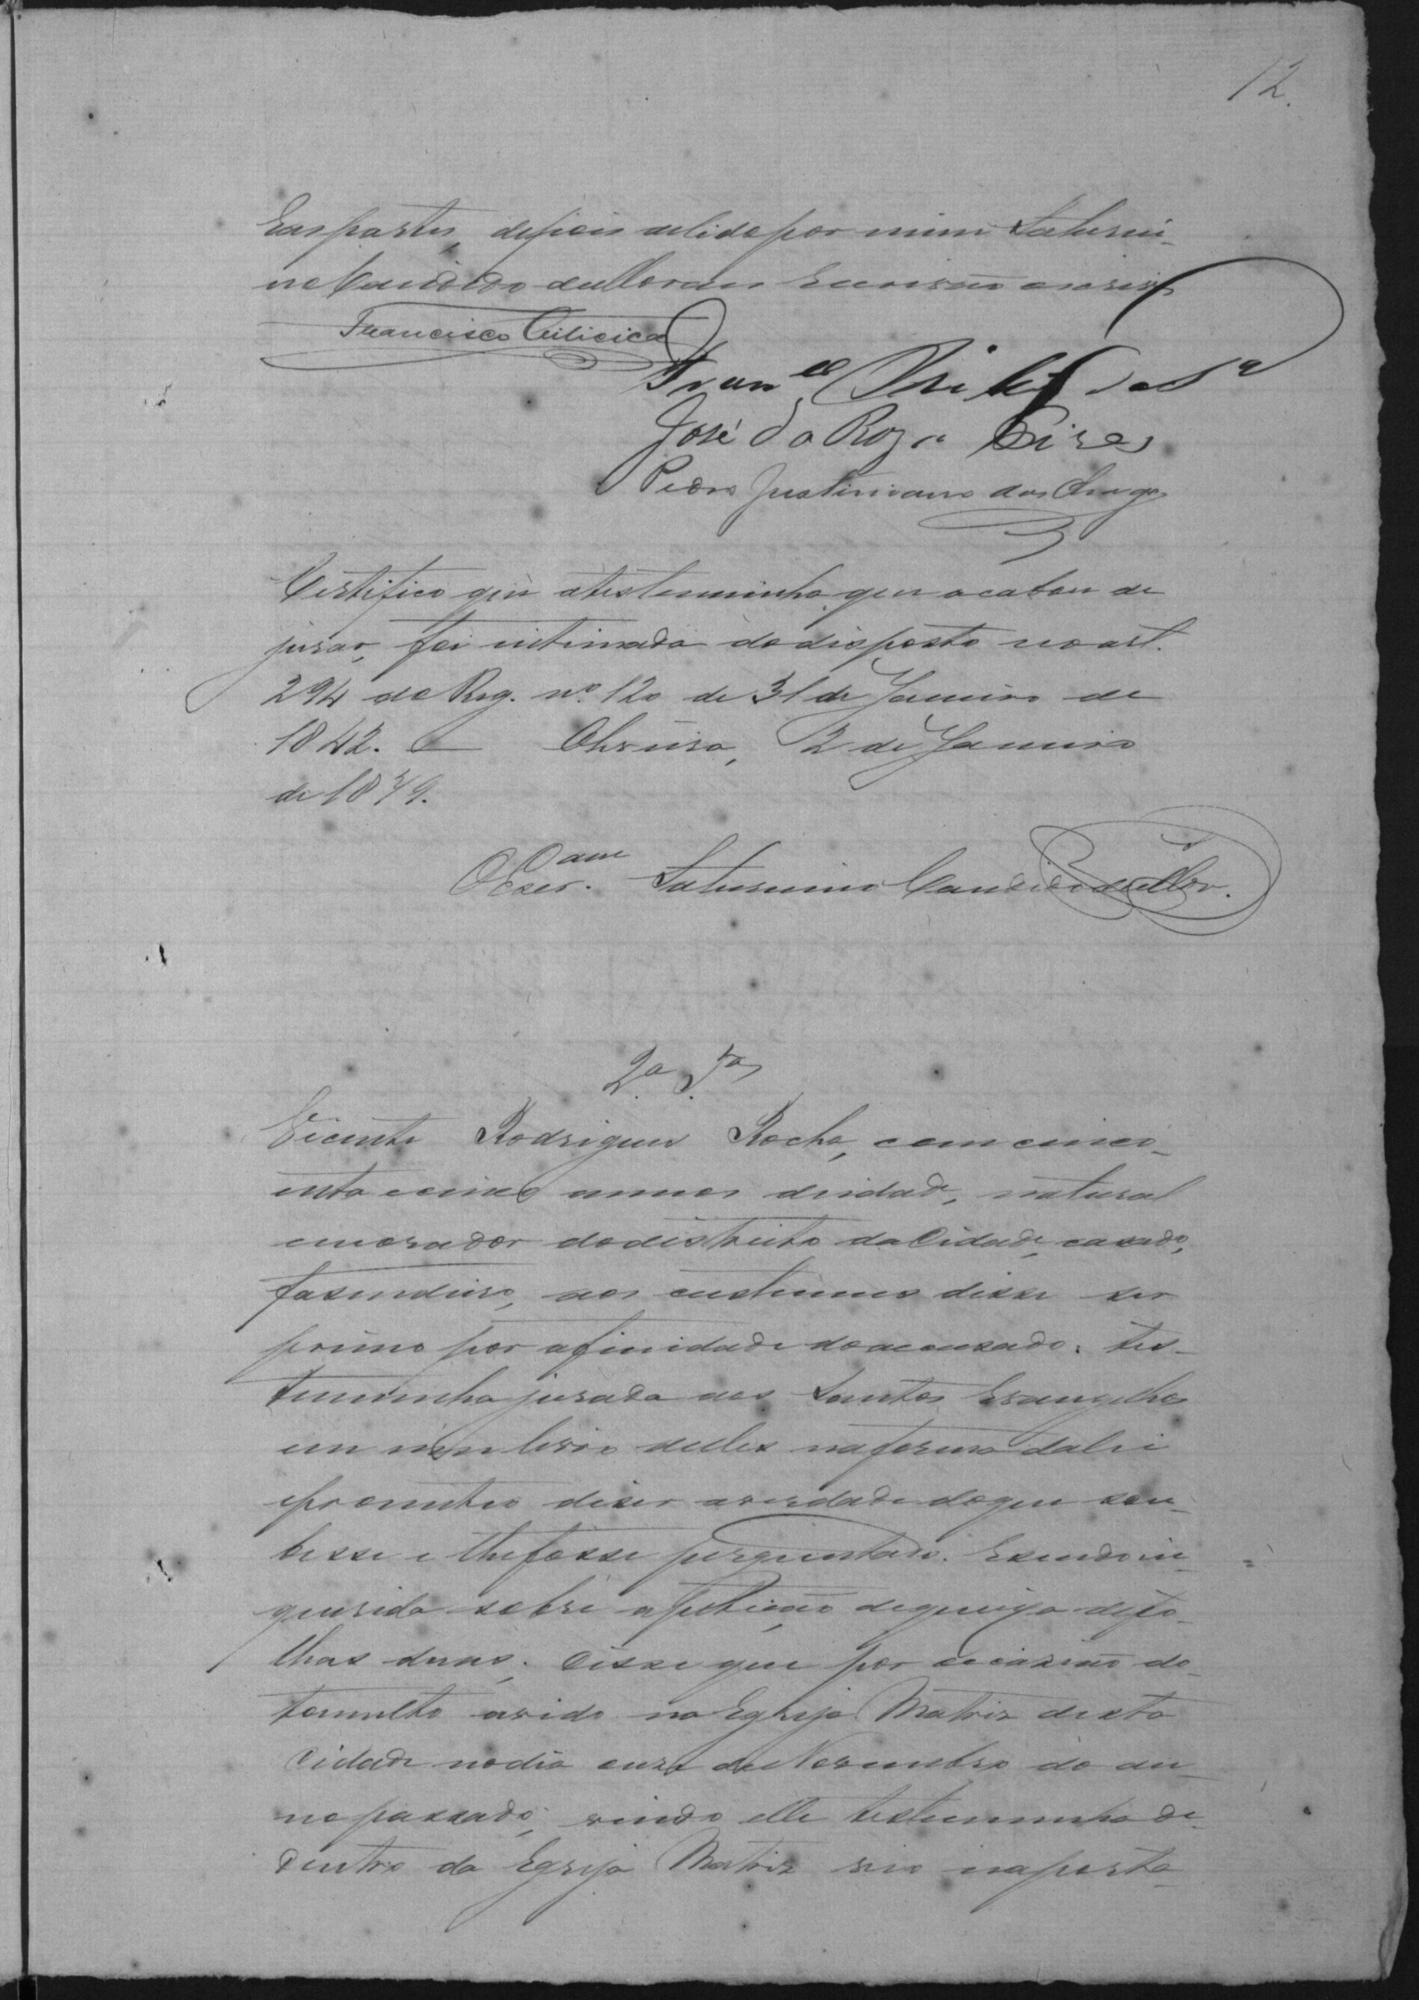 12.
E as partes, depois de lido por mim Saturni-
no Candido de Moraes Escrivão o escrivi
Francisco Cilicica
Fran.co
José da Roza Pires
Pedro Justiniano das Chagas
Certifico que a testemunha que acabou de
jurar, foi intimada do disposto no art.
294 do Reg. nº. 120 de 31 de Janeiro de
1842. O Chrúsa, 2 de Janeiro
de 1879.
O Escr.am Saturnino Candido de Mor.
2.a T.a
Vicente Rodrigues Rocha, com cinco-
enta e cinco annos de idade, natural
e morador do districto da Cidade, casado,
fasendeiro, aos custumes disse ser
primo por afinidade do accusado; tes-
temunha jurada aos Santos Evangelhos
em um livro delles na forma da lei
e prometteo diser a verdade do que sou-
besse e lhe fosse perguntado. E sendo in-
querida sobre a petição de queixa de fo-
lhas duas; Disse que por occasião do
tumulto avido na Egreja Matriz desta
Cidade no dia onze de Novembro do an-
no passado, vindo elle testemunha de
dentro da Egreja Matriz vio na porta